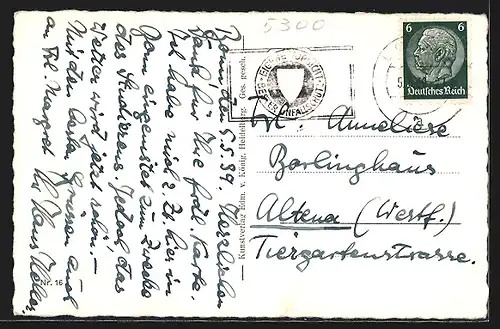 5300
6 6
Deutsches Reich
Kunstverlag Edm. v. König, Heidelberg. Ges. gesch.
Nr. 16
Bonn, den 5.5.39. Herzlichen
Dank für Ihre frdl. Karte.
Ich habe mich z. Zt. hier in
Bonn eingenistet zum Zwecke
des Studierens. Jedoch das
Wetter wird jetzt schön. –
Mit den besten Grüssen auch
an Frl. Margret Ihr Hans
Frl. Anneliese
Borlinghaus
Altena (Westf.)
Tiergartenstrasse.